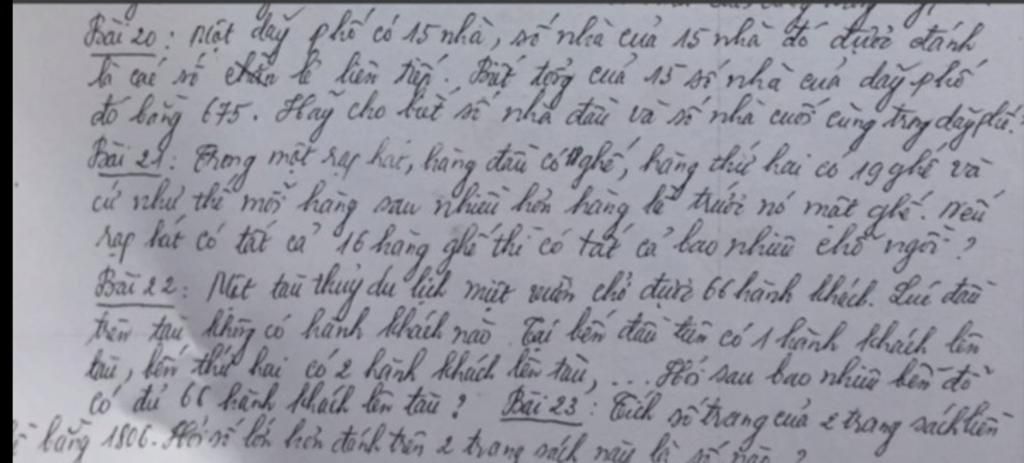 Bài 20: Một dãy phố có 15 nhà, số nhà của 15 nhà đó được đánh
là các số chẵn lẻ liên tiếp. Biết tổng của 15 số nhà của dãy phố
đó bằng 675. Hãy cho biết số nhà đầu và số nhà cuối cùng trong dãy phố.
Bài 21: Trong một rạp hát, hàng đầu có ghế, hàng thứ hai có 19 ghế và
cứ như thế mỗi hàng sau nhiều hơn hàng liền trước nó một ghế. Nếu
rạp hát có tất cả 16 hàng ghế thì có tất cả bao nhiêu chỗ ngồi?
Bài 22: Một tàu thuỷ du lịch miệt vườn chở được 66 hành khách. Lúc đầu
trên tàu không có hành khách nào. Tại bến đầu tiên có 1 hành khách lên
tàu, bến thứ hai có 2 hành khách lên tàu, ... Hỏi sau bao nhiêu bến đỗ
có đủ 66 hành khách lên tàu? Bài 23: Tích số trang của 2 trang sách liền
bằng 1806. Hỏi số lớn hơn đánh trên 2 trang sách này là số nào?